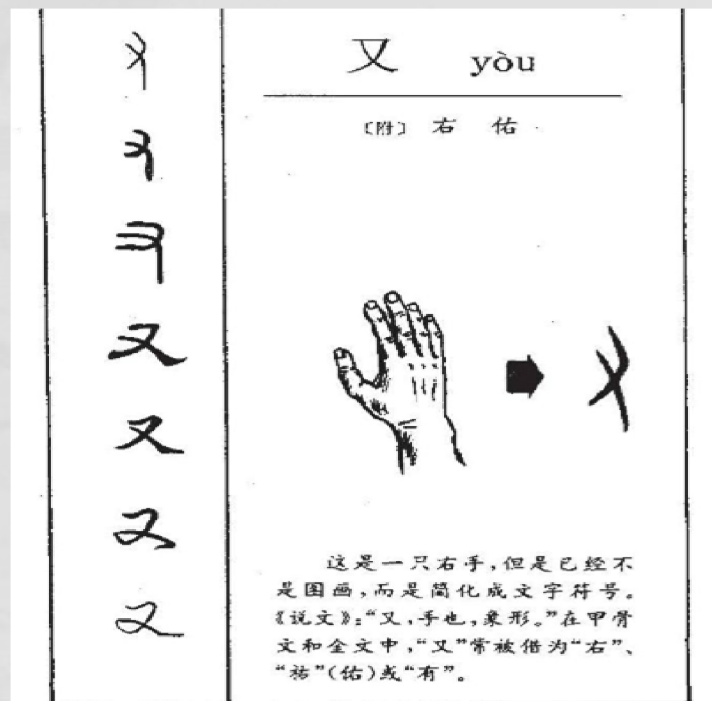 又 yòu
〔附〕 右 佑
这是一只右手，但是已经不
是图画，而是简化成文字符号。
《说文》：“又，手也，象形。”在甲骨
文和金文中，“又”常被借为“右”、
“祐”（佑）或“有”。
又
又
又
又